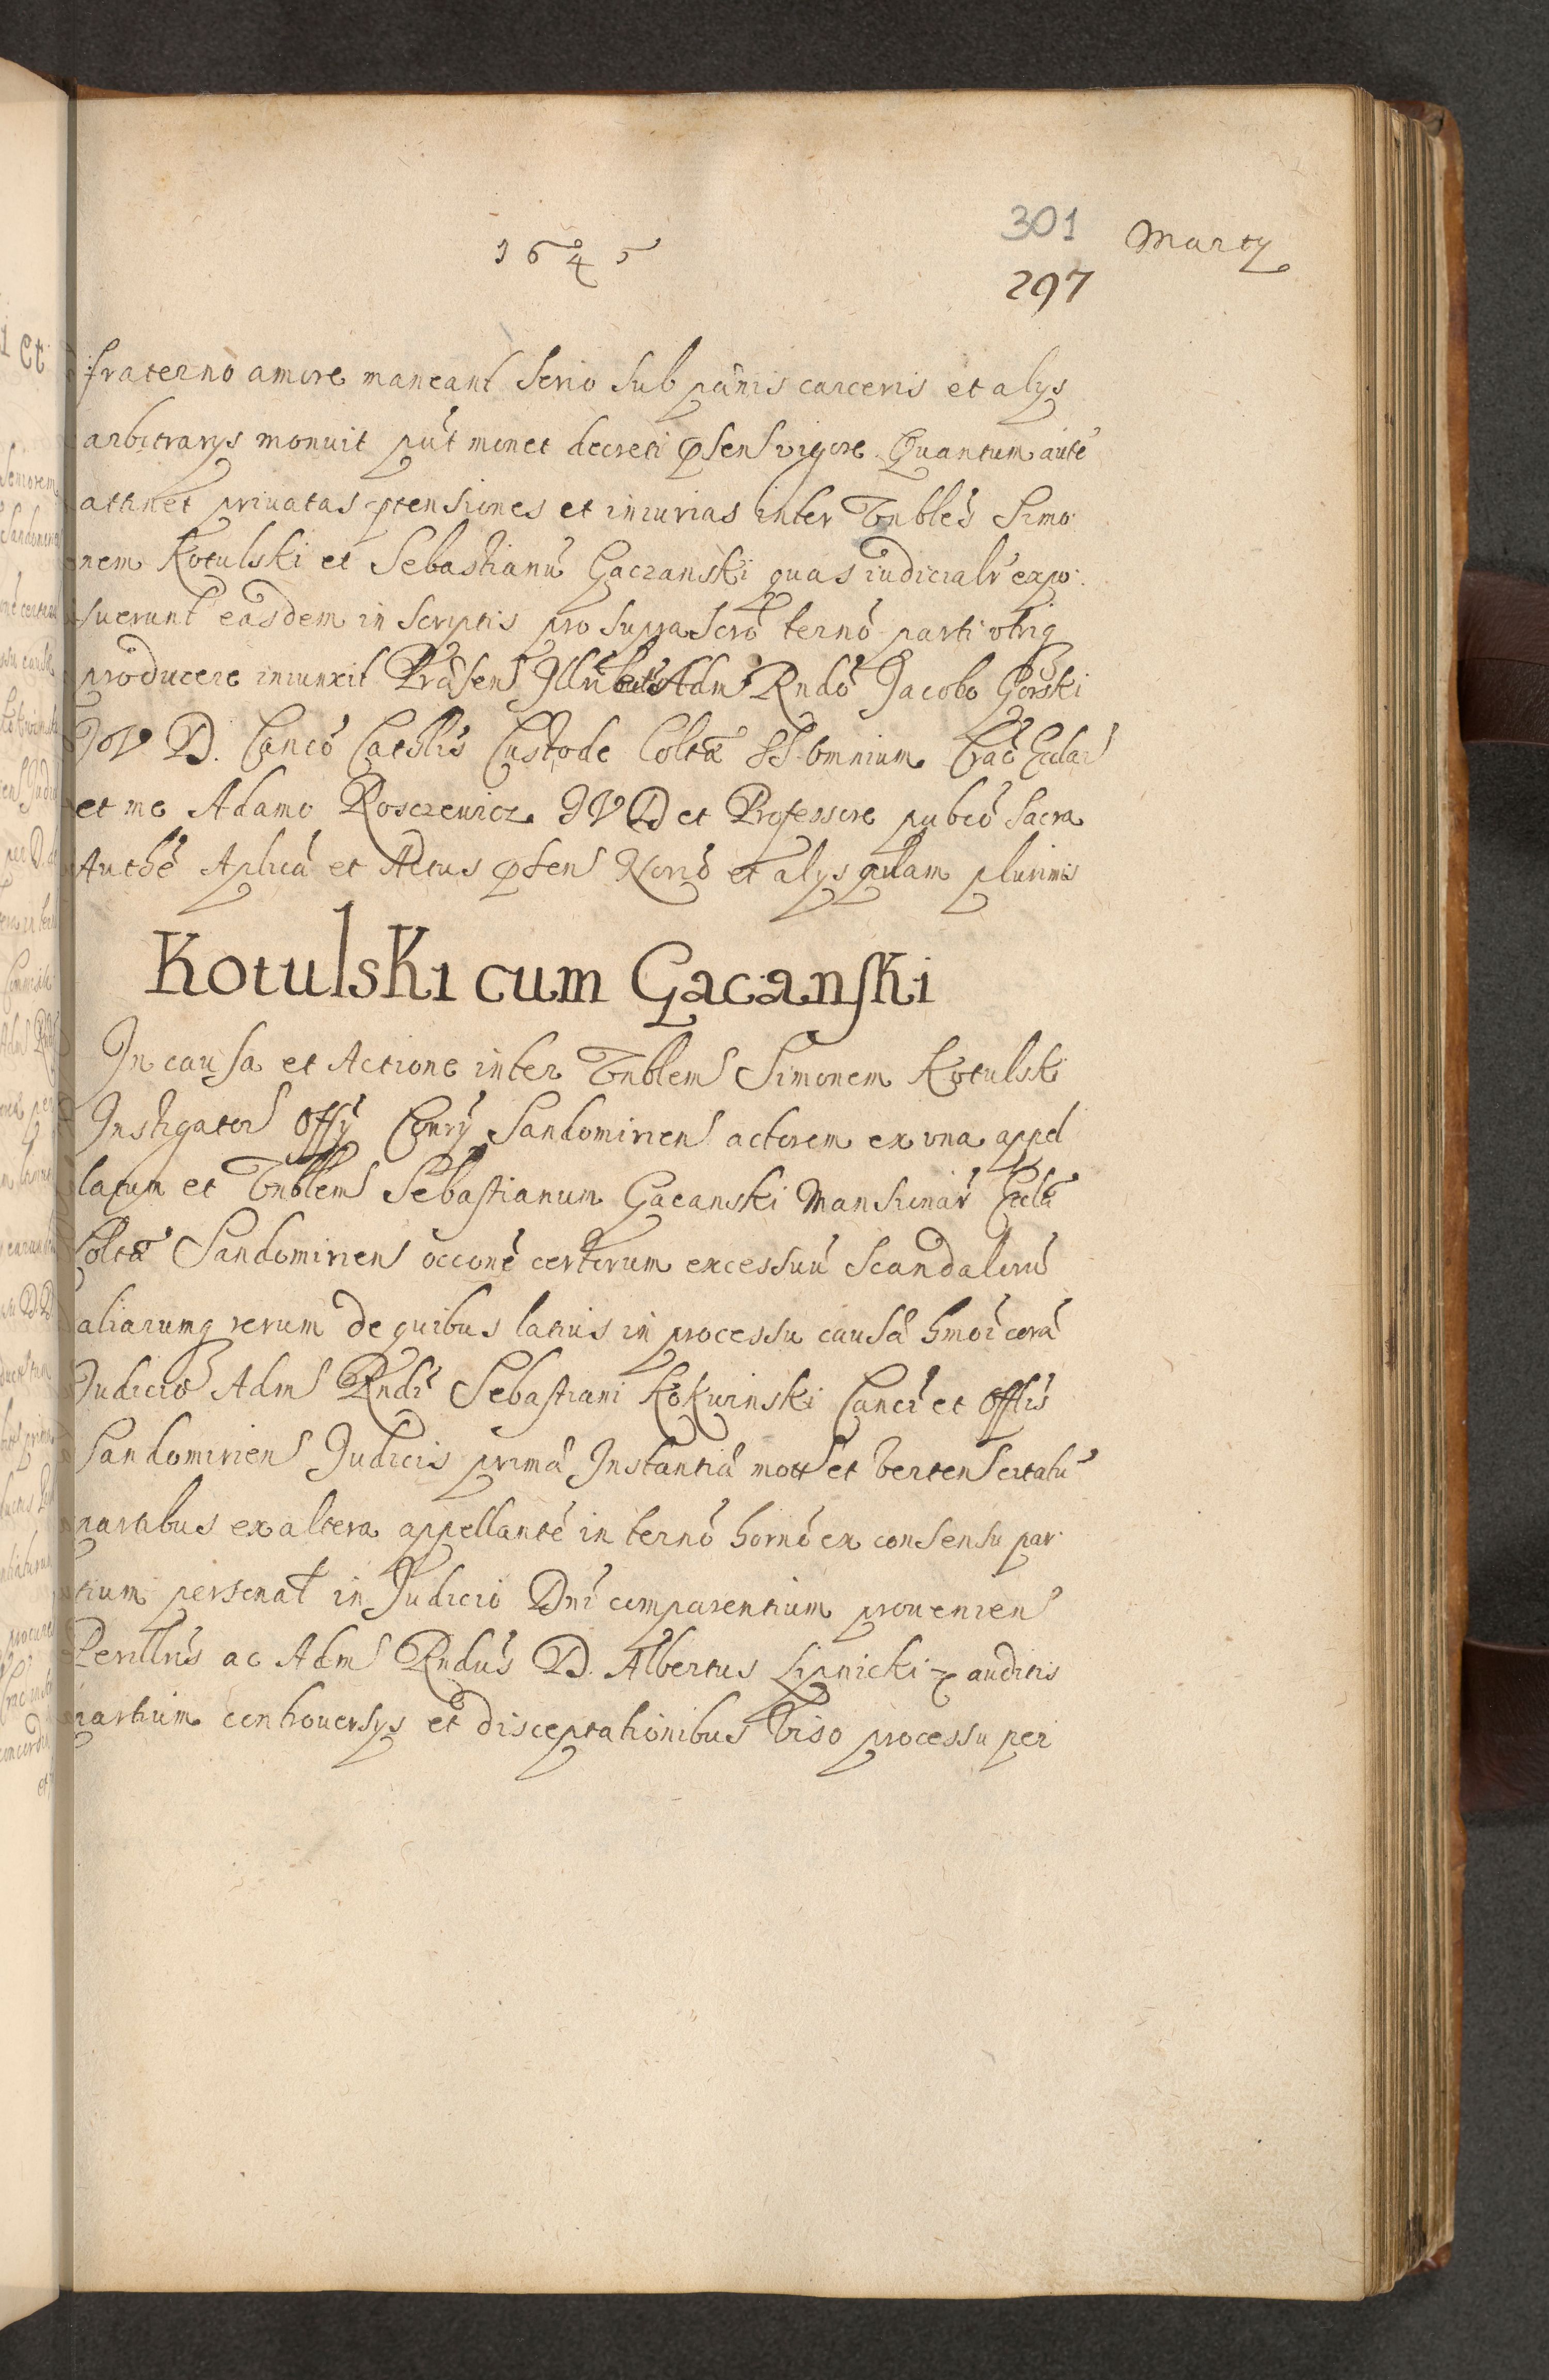 1645
301 Martij
297
fraterno amore maneant serio sub pœnis carceris et alijs
arbitrarijs monuit put monet decreti pñsens vigore. Quantum autē
attinet priuatas ptensiones et iniurias inter Vnbles Simo
nem Kotulski et Sebastianū Gaczanski quas iudicialr expo
suerunt easdem in scriptis pro suprascro termo parti vtriq
producere iniunxit Præsen Adm Rndo Jacobo Gorski
JV D. Canco Cathlis Custode Coltæ SS. omnium Crac
et me Adamo Roszewicz JVD et Professore pubco Sacra
Authe Aplica et Actus psens Norio et alijs qulam plurimis
Kotulski cum Gacanski
In causa et Actione inter Vnblem Simonem Kotulski
Instigator Offÿ Consrÿ Sandomirien actorem ex vna appel
latum et Vnblem Sebastianum Gacanski Mansionar Ecclæ
Coltæ Sandomirien occone certorum excessuū scandalorū
aliarumq rerum de quibus latius in processu causæ hmoi corā
Judicio Adm Rndi Sebastiani Kokwinski Canci et Offlis
Sandomirien Judicis primæ Instantiæ mott et verten ertatū
partibus ex altera appellantē in termo horno ex consensu par
tium personal in Judicio Dni comparentium prouenien
Perillris ac Adm Rndus D. Albertus Lipnicki auditis
partium controuersijs et disceptationibus viso processu per